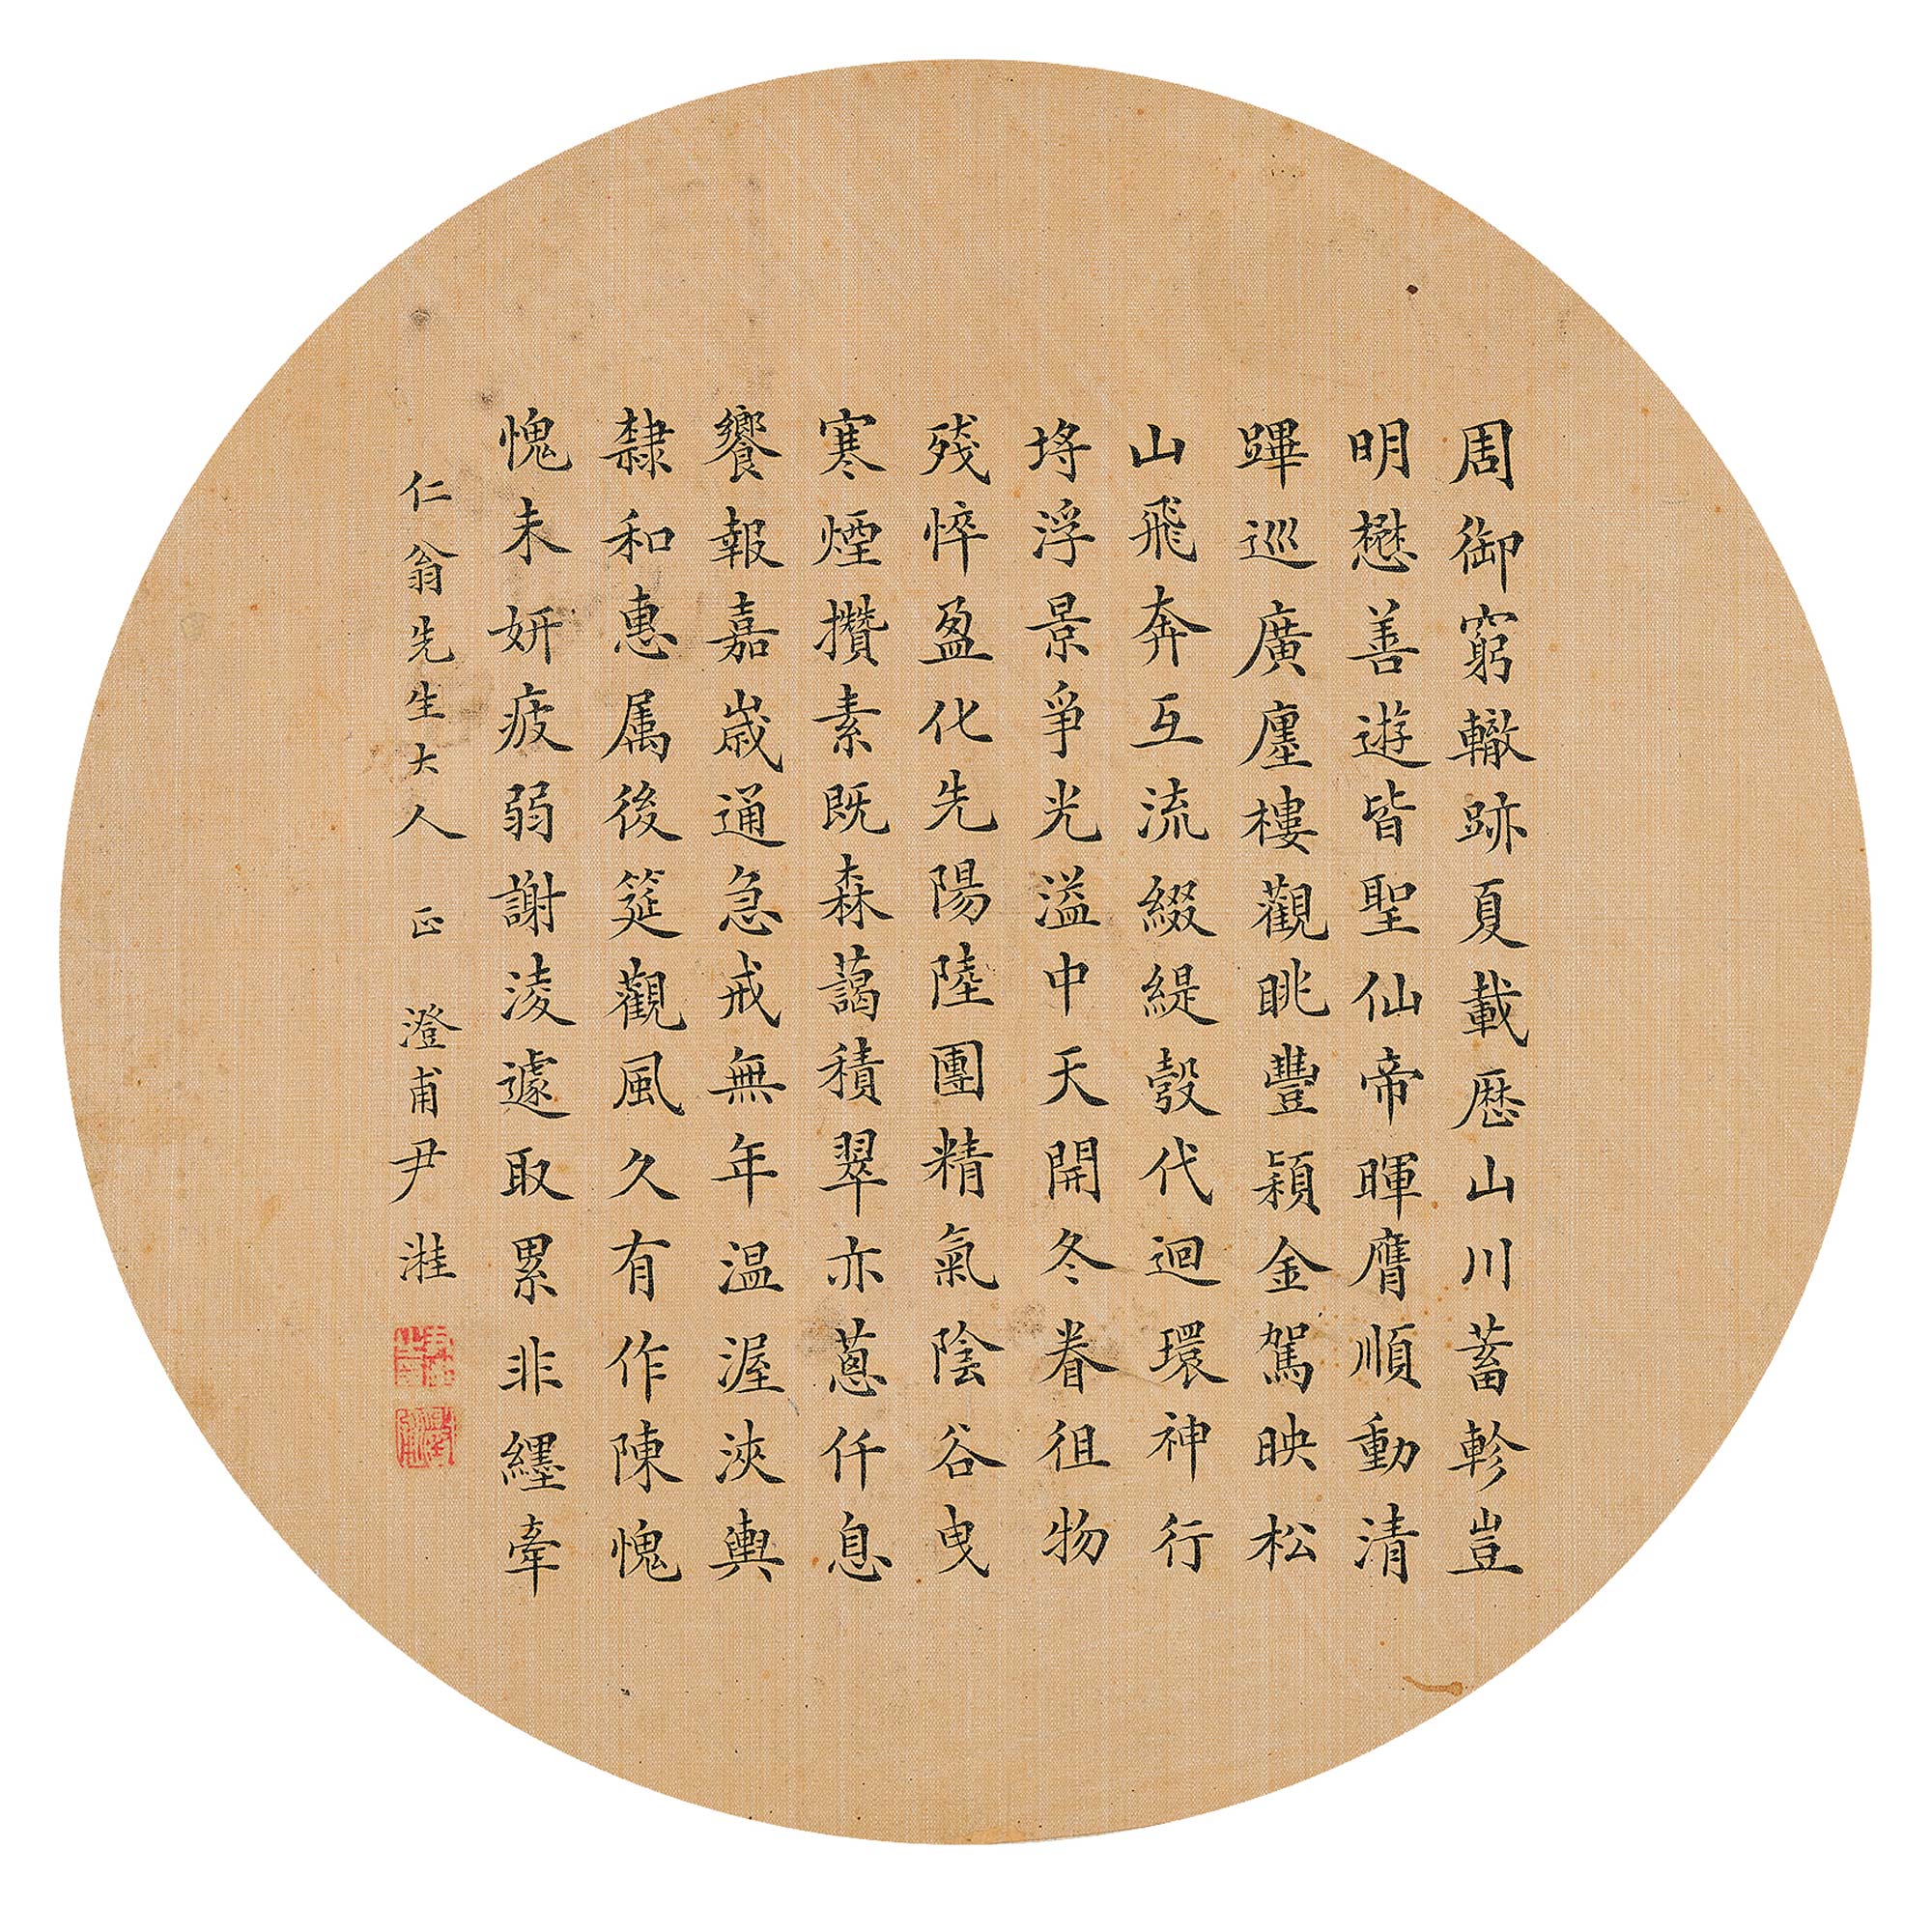 周御窮轍跡夏載歷山川蓄軫豈
明懋善遊皆聖仙帝暉膺順動清
蹕巡廣廛樓觀眺豐穎金駕映松
山飛奔互流綴緹彀代迴環神行
埒浮景爭光溢中天開冬眷徂物
残悴盈化先陽陸團精氣陰谷曳
寒煙攢素既森藹積翠亦蔥仟息
饗報嘉歲通急戒無年温渥浹輿
隸和惠属後筵觀風久有作陳愧
愧未妍疲弱謝淩遽取累非纆牽
仁翁先生大人 正 澄甫尹溎